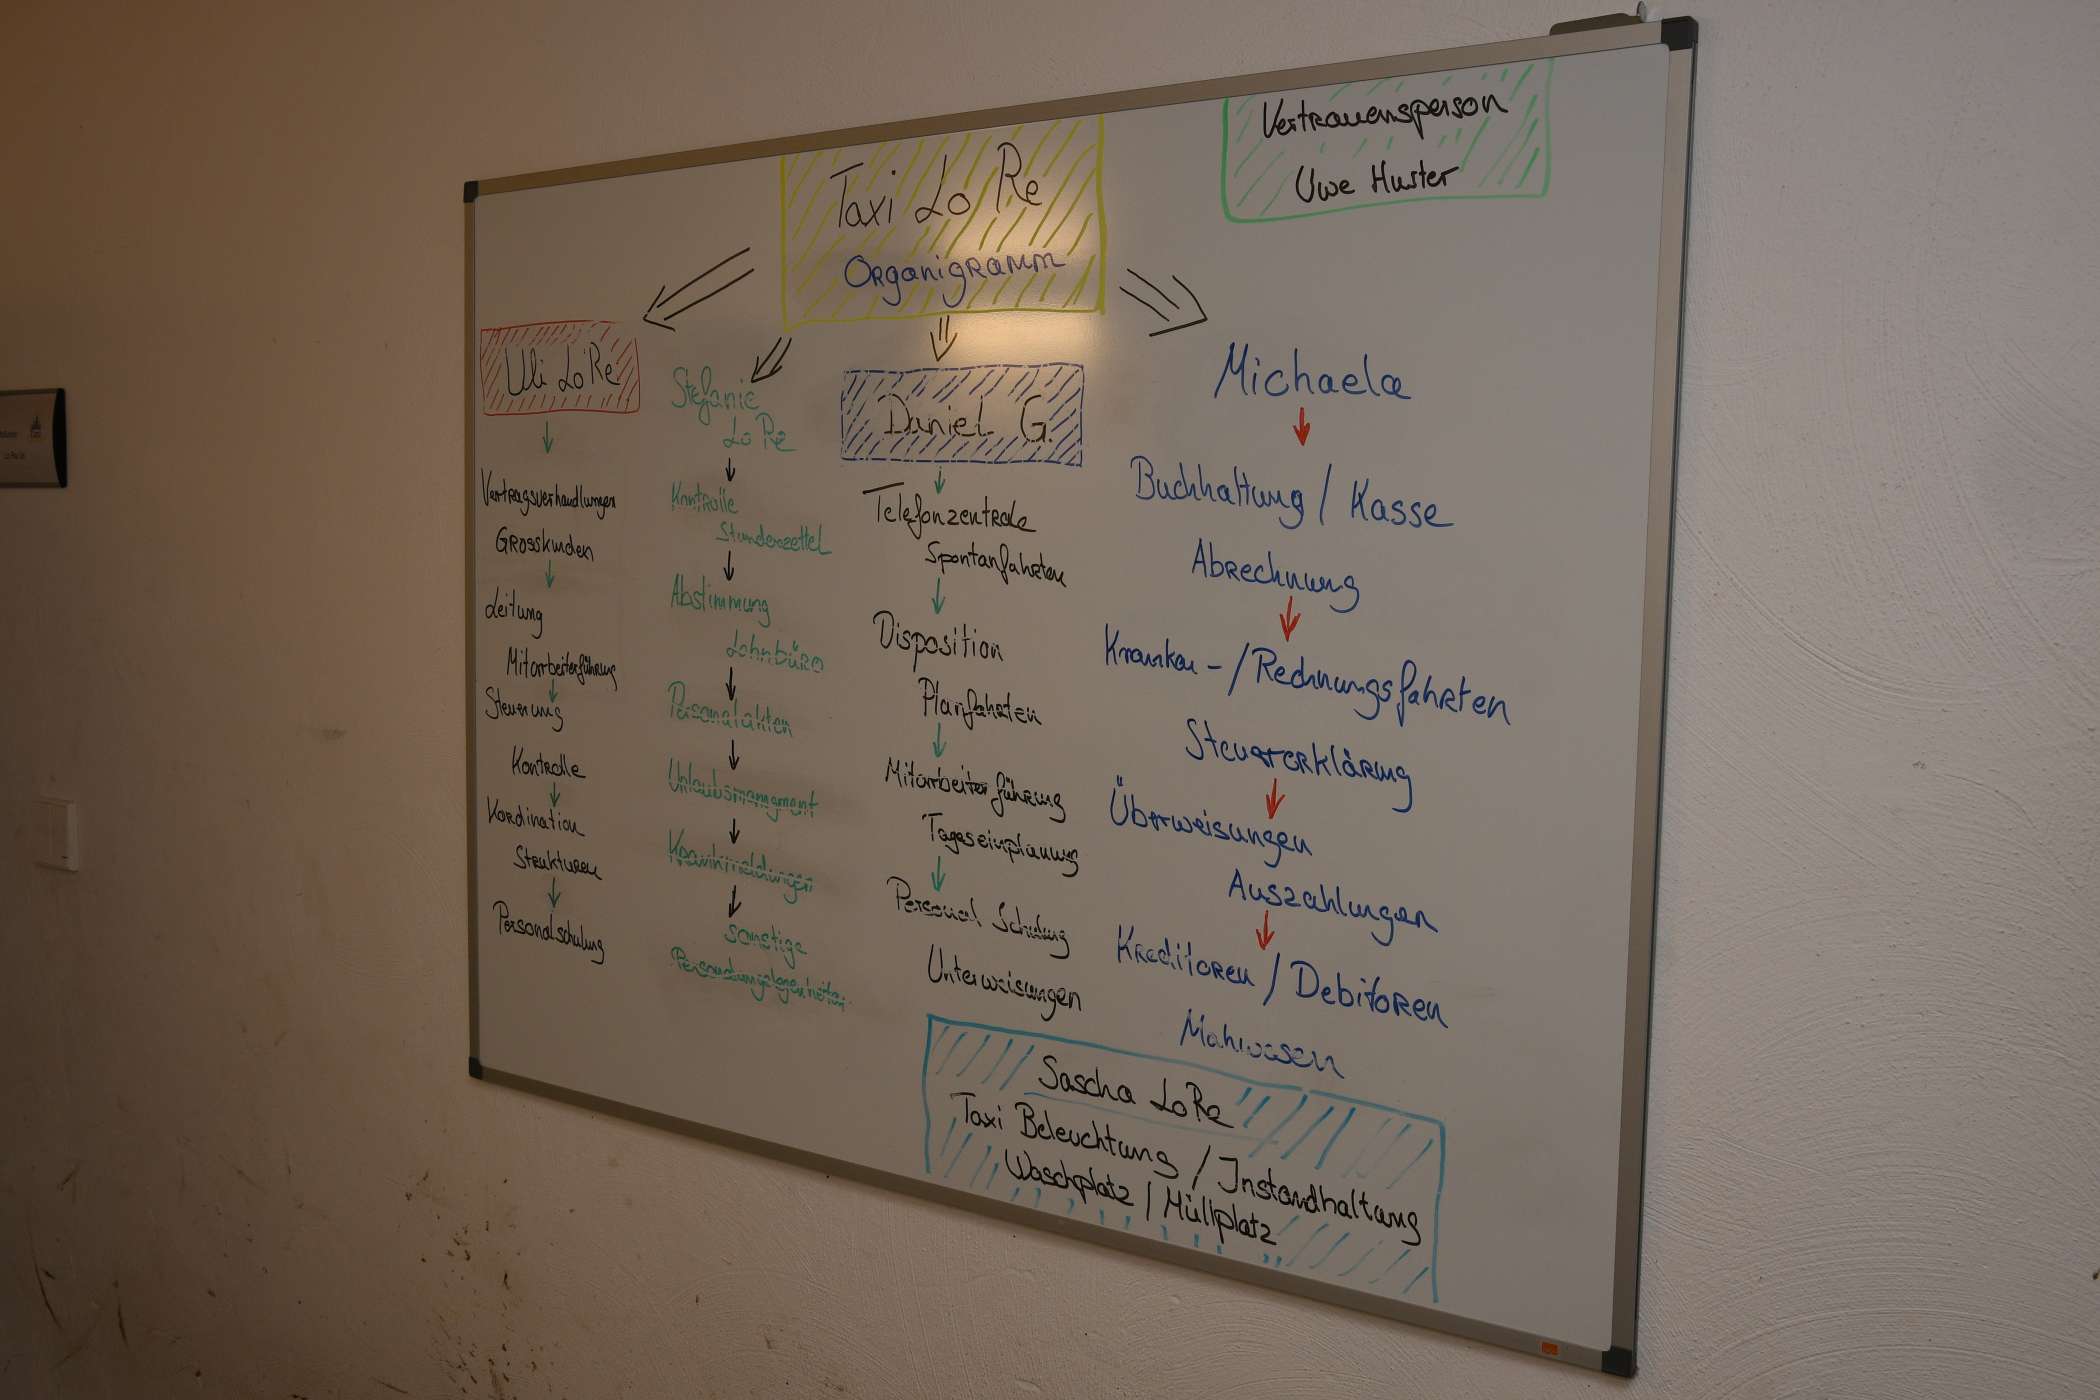 Vertrauensperson
Uwe Huster
Taxi Lo Re
Organigramm
Uli LoRe
Vertragsverhandlungen
Grosskunden
Leitung
Mitarbeiterführung
Steuerung
Kontrolle
Kordination
Strukturen
Personalschulung
Stefanie
Lo Re
Kontrolle
Stundenzettel
Abstimmung
Lohnbüro
Personalakten
Urlaubsmanagment
Krankmeldungen
sonstige
Daniel G.
Telefonzentrale
Spontanfahrten
Disposition
Planfahrten
Mitarbeiterführung
Tageseinplanung
Personal Schulung
Unterweisungen
Michaela
Buchhaltung / Kasse
Abrechnung
Kranken- / Rechnungsfahrten
Steuererklärung
Überweisungen
Auszahlungen
Kreditoren / Debitoren
Mahnwesen
Sascha LoRe
Taxi Beleuchtung / Instandhaltung
Waschplatz / Müllplatz